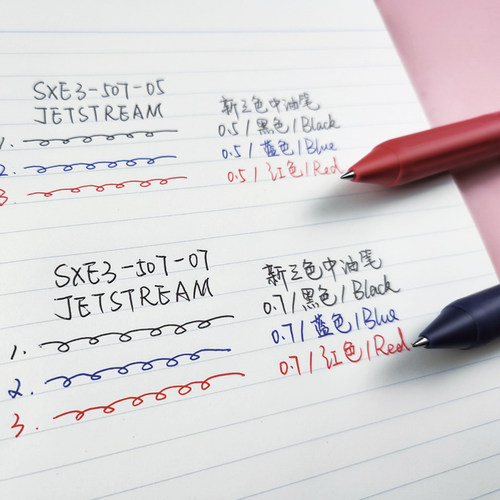 SXE3-507-05
JETSTREAM
新三色中油笔
0.5/黑色/Black
0.5/蓝色/Blue
0.5/红色/Red
1.
2.
3.
SXE3-507-07
JETSTREAM
新三色中油笔
0.7/黑色/Black
0.7/蓝色/Blue
0.7/红色/Red
1.
2.
3.